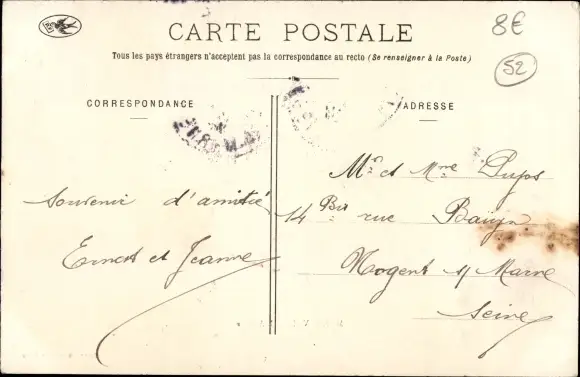 CARTE POSTALE
8€
52
Tous les pays étrangers n'acceptent pas la correspondance au recto (Se renseigner à la Poste)
CORRESPONDANCE
ADRESSE
Souvenir d'amitié
Ernest et Jeanne
Mr et Mme Dupos
14 Bis rue Baüyn
Nogent s/ Marne
Seine